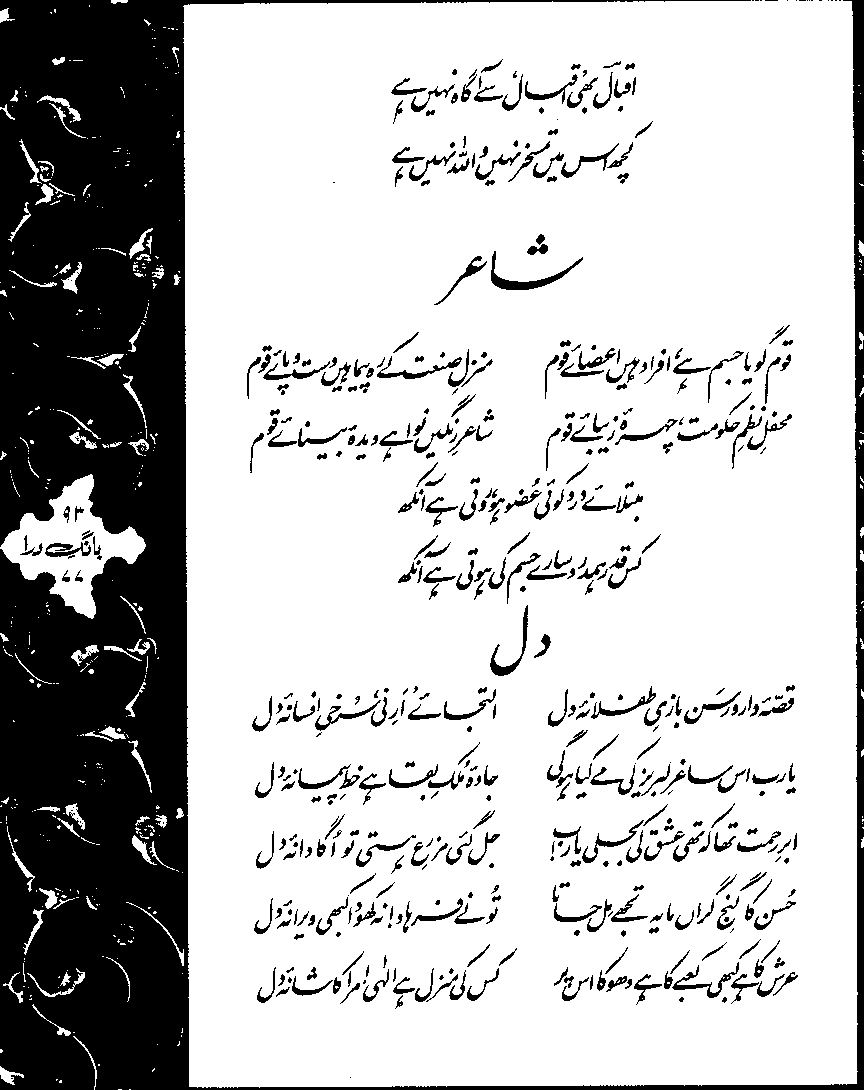 اقبالؔ بھی اقبالؔ سے آگاہ نہیں ہے
کچھ اس میں تمسخر نہیں، واللہ نہیں ہے
شاعر
قوم گویا جسم ہے، افراد ہیں اعضائے قوم منزلِ صنعت کے رہ پیما ہیں دست و پائے قوم
محفلِ نظمِ حکومت، چہرۂ زیبائے قوم شاعرِ رنگیں نوا ہے دیدۂ بینائے قوم
مبتلائے درد کوئی عُضو ہو، روتی ہے آنکھ
کس قدر ہمدرد سارے جسم کی ہوتی ہے آنکھ
دل
قصّۂ دار و رسَن بازیِ طفلانۂ دل التجائے اَرِنی سُرخیِ افسانۂ دل
یارب اس ساغرِ لبریز کی مے کیا ہوگی جادۂ مُلکِ بقا ہے خطِ پیمانۂ دل
ابرِ رحمت تھا کہ تھی عشق کی بجلی یارب! جل گئی مزرعِ ہستی تو اُگا دانۂ دل
حُسن کا گنجِ گراں مایہ تجھے مل جاتا تُو نے فرہاد! نہ کھودا کبھی ویرانۂ دل
عرش کا ہے کبھی کعبے کا ہے دھوکا اس پر کس کی منزل ہے الٰہی! مرا کاشانۂ دل
۹۳
بانگِ درا
۷۷